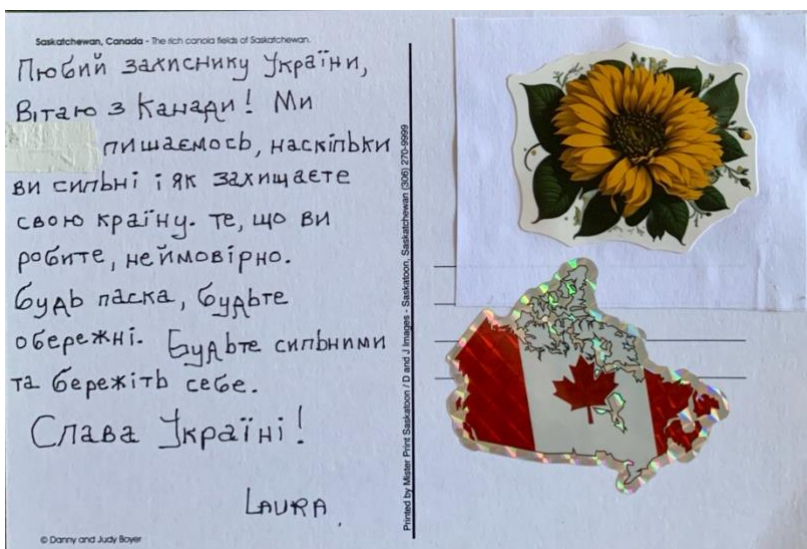 Saskatchewan, Canada - The rich canola fields of Saskatchewan.
Любий захиснику України,
Вітаю з Канади! Ми
пишаємось, наскільки
ви сильні і як захищаєте
свою країну. те, що ви
робите, неймовірно.
Будь ласка, будьте
обережні. Будьте сильними
та бережіть себе.
Слава Україні!
LAURA.
© Danny and Judy Boyer
Printed by Mister Print Saskatoon / D and J Images - Saskatoon, Saskatchewan (306) 270-9999